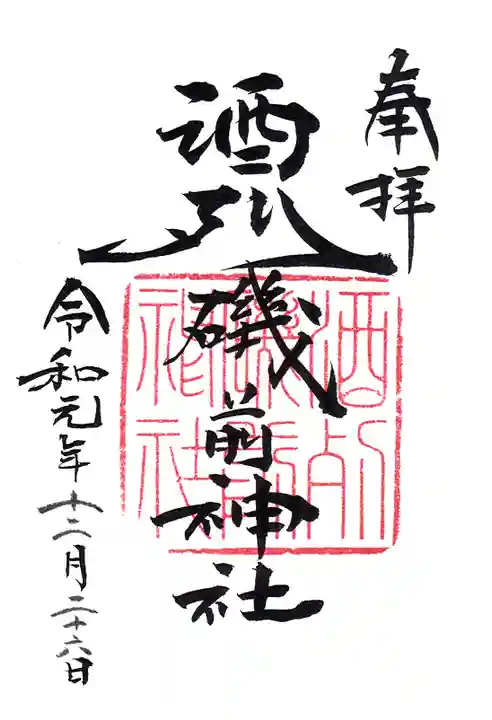 奉拝
酒列磯前神社
酒列
磯前
神社
令和元年十二月二十六日